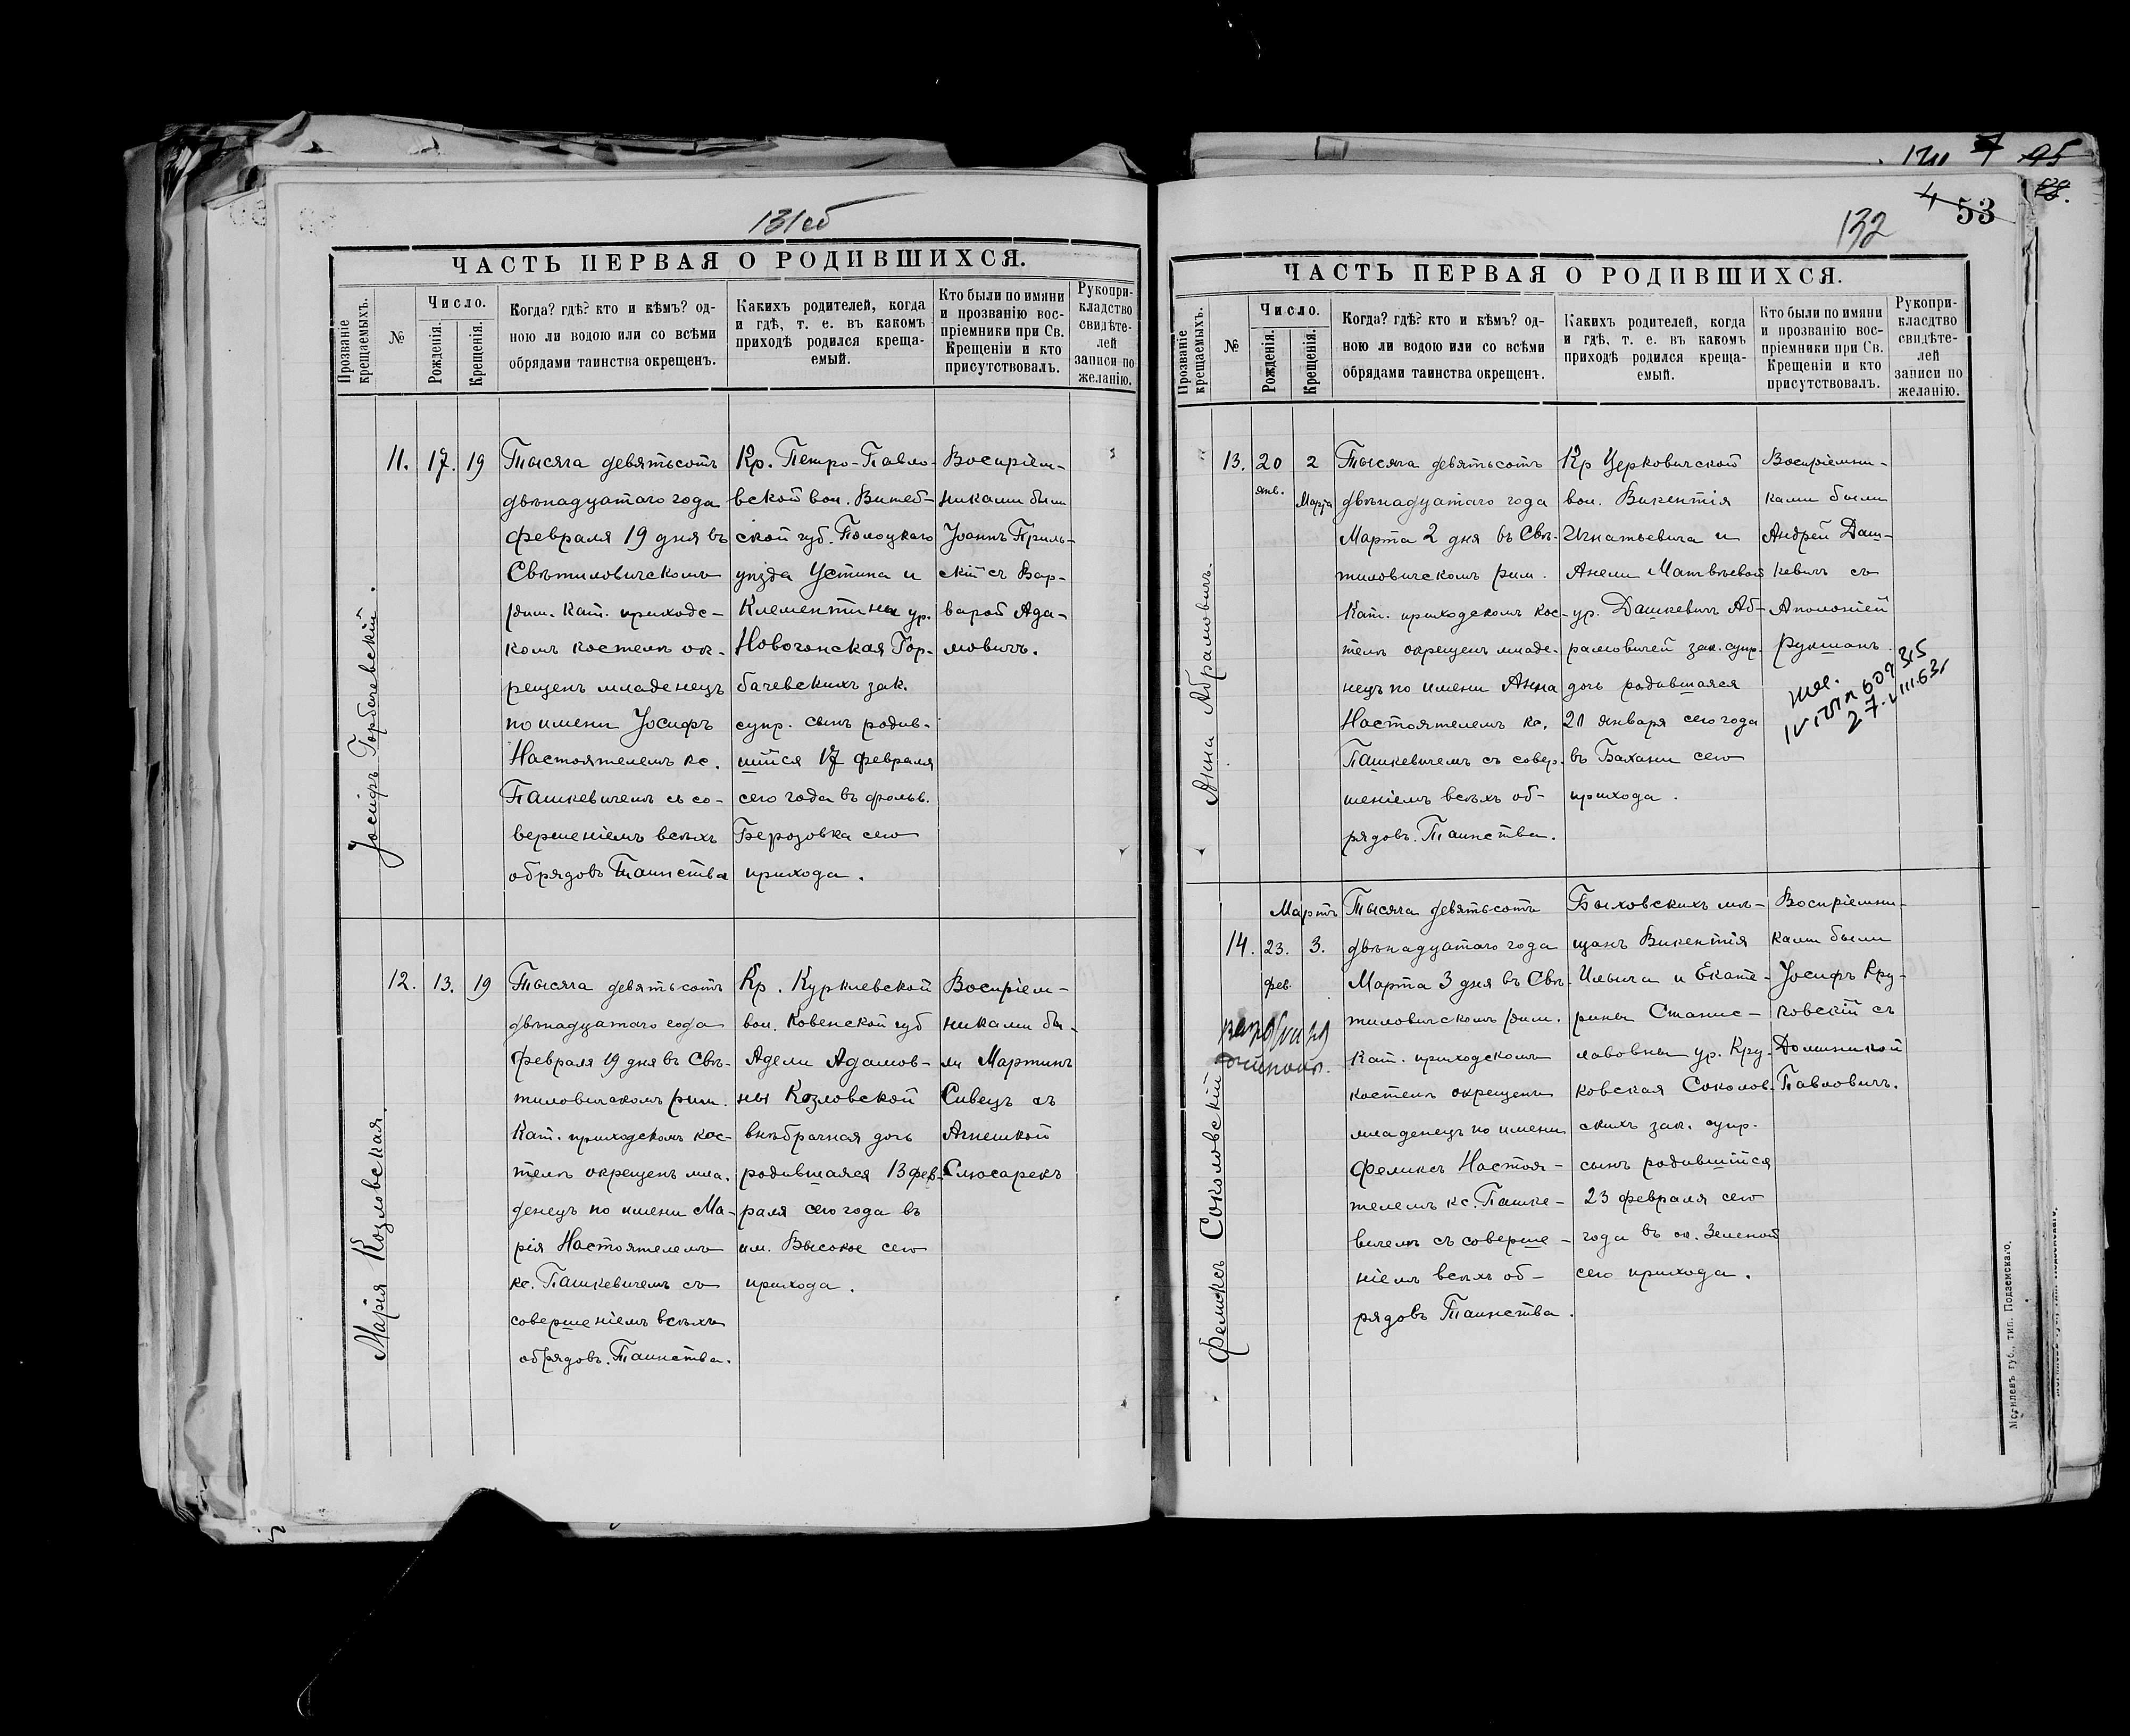 131об
ЧАСТЬ ПЕРВАЯ О РОДИВШИХСЯ.
Прозваніе крещаемыхъ.
№
Число.
Рожденія.
Крещенія.
Когда? гдѣ? кто и кѣмъ? од-
ною ли водою или со всѣми
обрядами таинства окрещенъ.
Какихъ родителей, когда
и гдѣ, т. е. въ какомъ
приходѣ родился креща-
емый.
Кто были по имяни
и прозванію вос-
пріемники при Св.
Крещеніи и кто
присутствовалъ.
Рукопри-
кладство
свидѣте-
лей
записи по
желанію.
Іосифъ Горбачевскій.
11. 17. 19
Тысяча девятьсотъ
двѣнадцатаго года
февраля 19 дня въ
Свѣтиловичскомъ
рим. кат. приходс-
комъ костелѣ ок-
рещенъ младенецъ
по имени Іосифъ
Настоятелемъ кс.
Пашкевичемъ съ со-
вершеніемъ всѣхъ
обрядовъ Таинства
Кр. Петро-Павло-
вской вол. Витеб-
ской губ. Полоцкаго
уѣзда Устина и
Клементины ур.
Новогонская Гор-
бачевскихъ зак.
супр. сынъ родив-
шійся 17 февраля
сего года въ фольв.
Берозовка сего
прихода.
Воспріем-
никами были
Іоаннъ Приль-
скій съ Вар-
варой Ада-
мовичъ.
Марія Козловская.
12. 13. 19
Тысяча девятьсотъ
двѣнадцатаго года
февраля 19 дня въ Свѣ-
тиловичскомъ рим.
кат. приходскомъ кос-
телѣ окрещенъ мла-
денецъ по имени Ма-
рія Настоятелемъ
кс. Пашкевичемъ съ
совершеніемъ всѣхъ
обрядовъ. Таинства.
Кр. Курклевской
вол. Ковенской губ
Адели Адамов-
ны Козловской
внѣбрачная дочь
родившаяся 13 фев-
раля сего года въ
им. Высокое сего
прихода.
Воспріем-
никами бы-
ли Мартинъ
Сивецъ съ
Агнешкой
Слюсарекъ
132
4
53
ЧАСТЬ ПЕРВАЯ О РОДИВШИХСЯ.
Прозваніе крещаемыхъ.
№
Число.
Рожденія.
Крещенія.
Когда? гдѣ? кто и кѣмъ? од-
ною ли водою или со всѣми
обрядами таинства окрещенъ.
Какихъ родителей, когда
и гдѣ, т. е. въ какомъ
приходѣ родился креща-
емый.
Кто были по имяни
и прозванію вос-
пріемники при Св.
Крещеніи и кто
присутствовалъ.
Рукопри-
класдтво
свидѣте-
лей
записи по
желанію.
Анна Абрамовичъ.
13. 20 2
янв. Марта
Тысяча девятьсотъ
двѣнадцатаго года
Марта 2 дня въ Свѣ-
тиловичскомъ рим.
кат. приходскомъ кос-
телѣ окрещенъ младе-
нецъ по имени Анна
Настоятелемъ кс.
Пашкевичемъ съ совер-
шеніемъ всѣхъ об-
рядовъ. Таинства.
Кр Церковичской
вол. Викентія
Игнатьевича и
Анели Матвѣевой
ур. Дашкевичъ Аб-
рамовичей зак. супр.
дочь родившаяся
20 января сего года
въ Бахани сего
прихода.
Воспріемни-
ками были
Андрей Даш-
кевичъ съ
Аполоніей
Рукшанъ.
Феликсъ Соколовскій
Мартъ
14. 23. 3.
фев.
Тысяча девятьсотъ
двѣнадцатаго года
Марта 3 дня въ Свѣ-
тиловичскомъ рим.
кат. приходскомъ
костелѣ окрещенъ
младенецъ по имени
Феликсъ Настоя-
телемъ кс. Пашке-
вичемъ съ соверше-
ніемъ всѣхъ об-
рядовъ Таинства.
Быховскихъ мѣ-
щанъ Викентія
Ильича и Екате-
рины Станис-
лавовны ур. Кру-
ковская Соколов-
скихъ зак. супр.
сынъ родившійся
23 февраля сего
года въ ок. Зеленой
сего прихода.
Воспріемни-
ками были
Іосифъ Кру-
ковскій съ
Доминикой
Павловичъ.
Могилевъ губ., тип. Подземскаго.